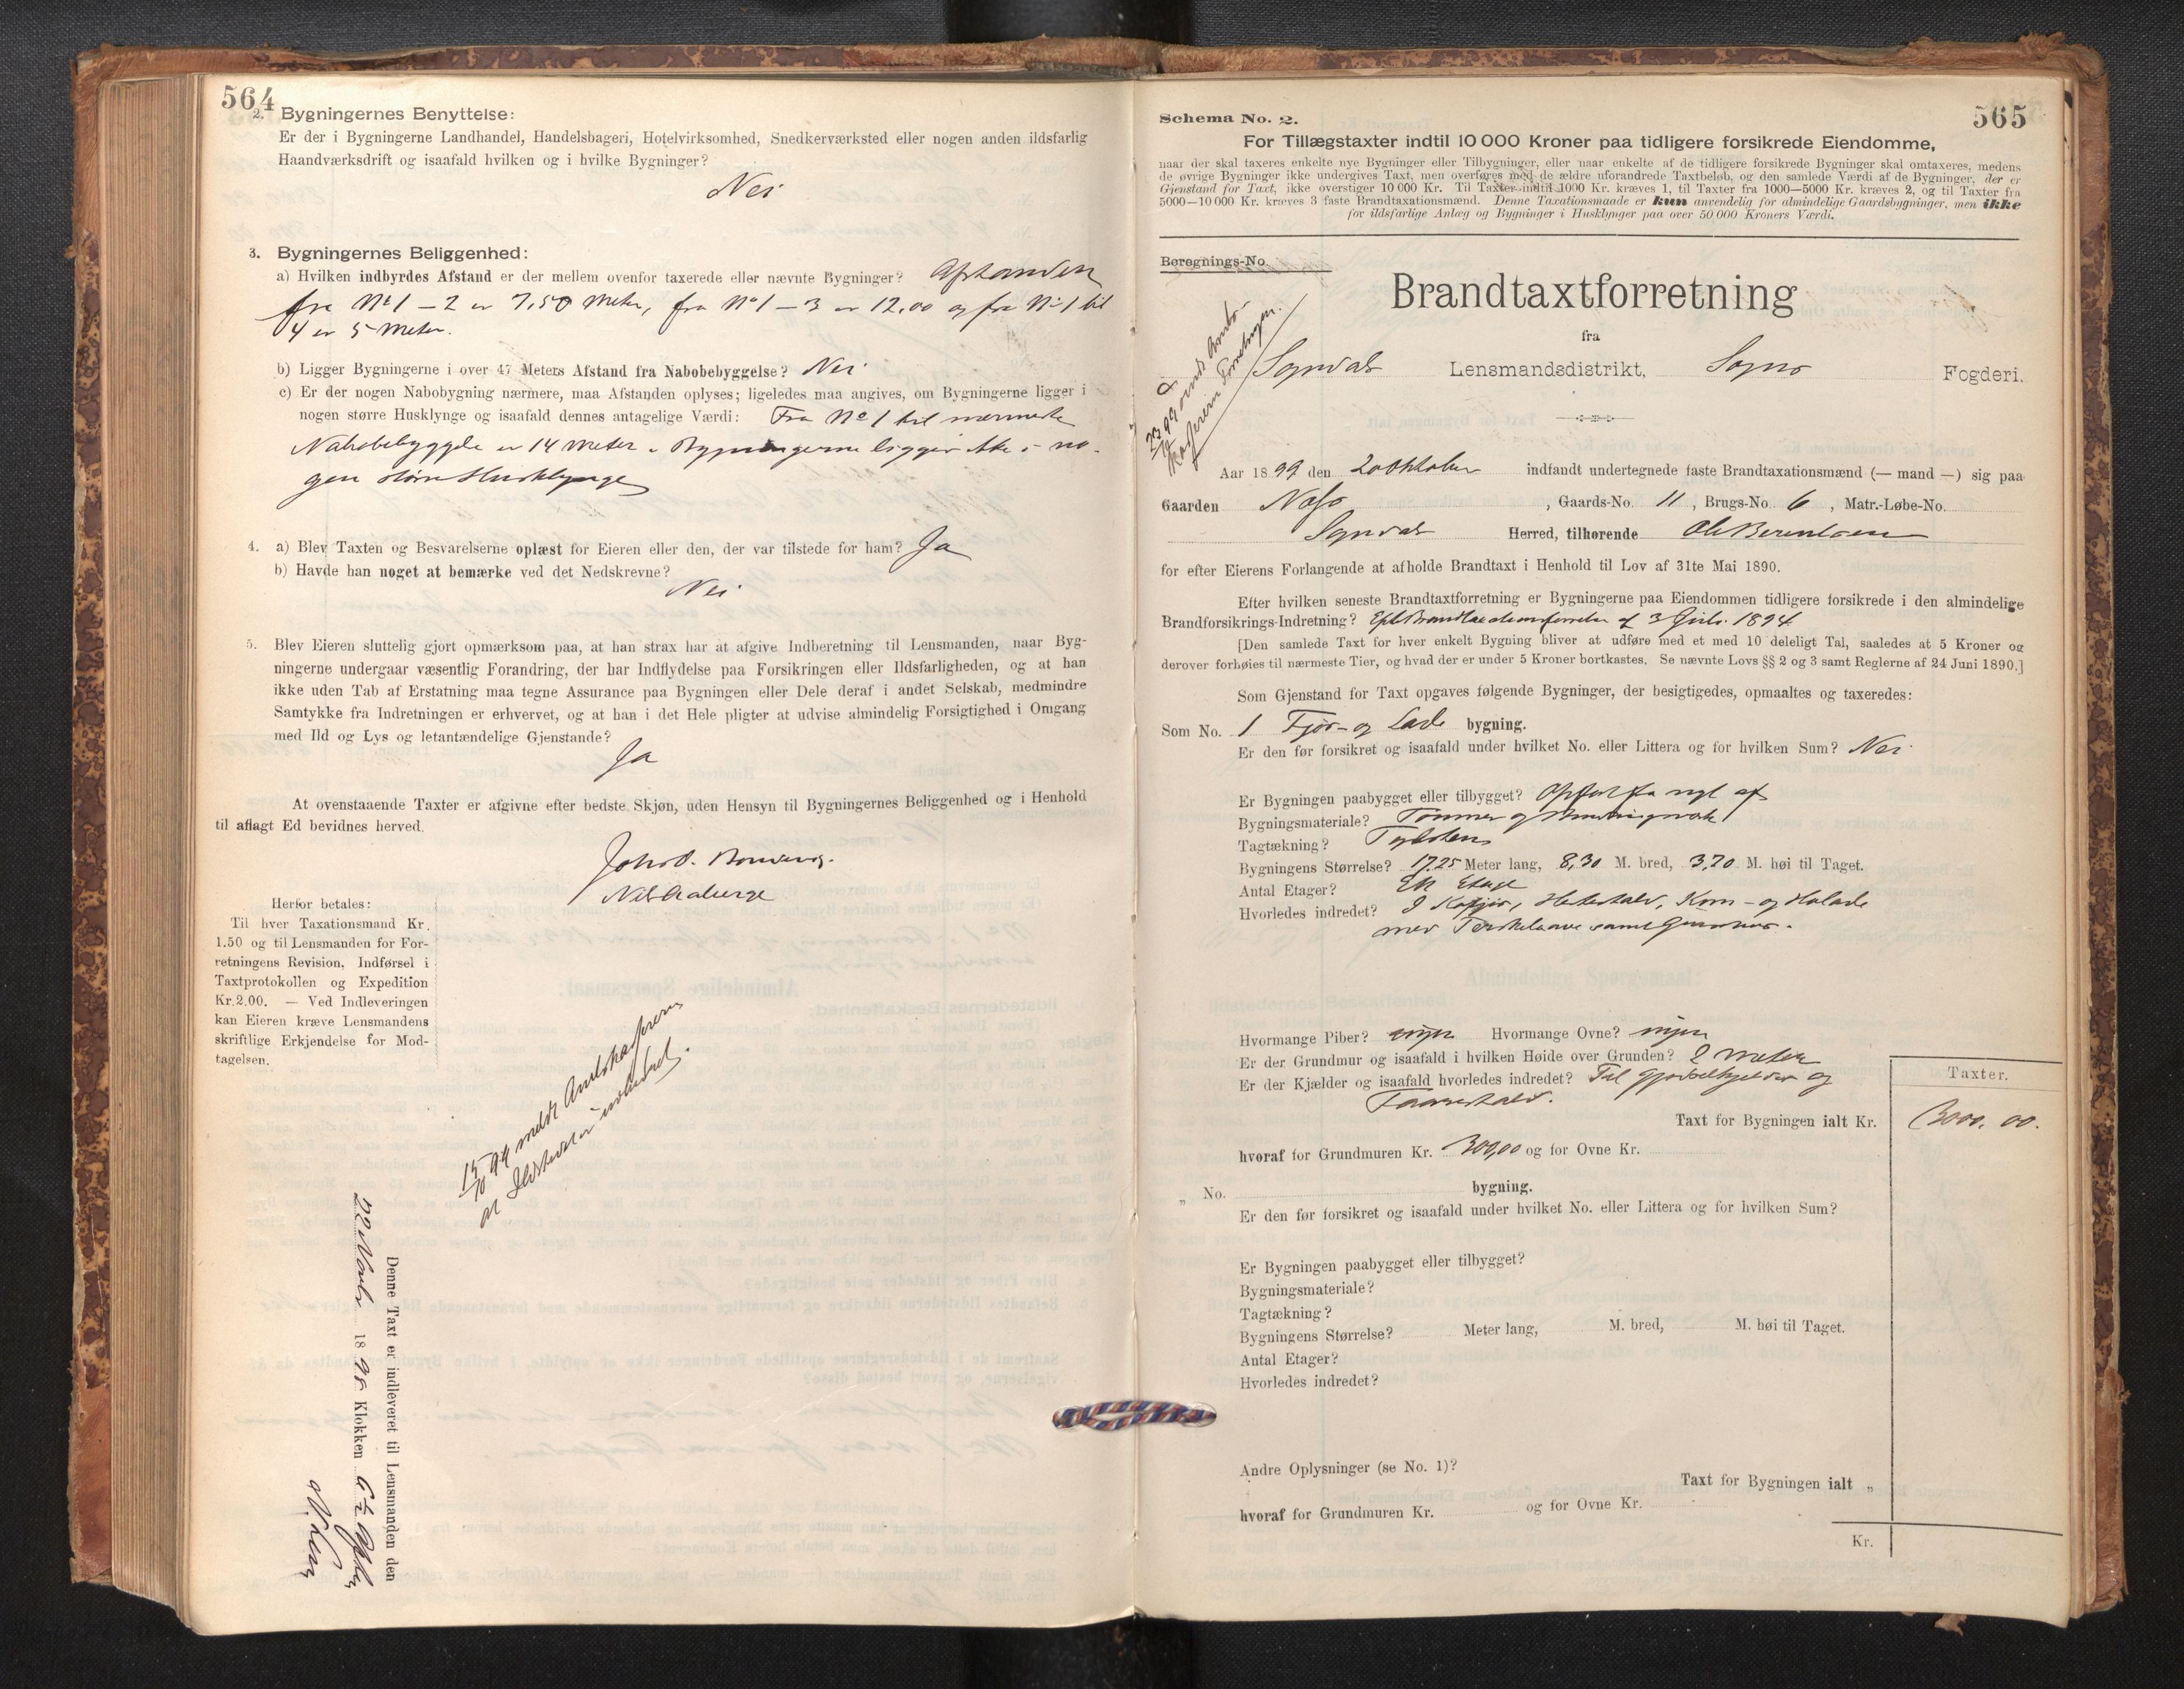 564
2. Bygningernes Benyttelse:
Er der i Bygningerne Landhandel, Handelsbageri, Hotelvirksomhed, Snedkerværksted eller nogen anden ildsfarlig
Haandværksdrift og isaafald hvilken og i hvilke Bygninger?
Nei
3. Bygningernes Beliggenhed:
a) Hvilken indbyrdes Afstand er der mellem ovenfor taxerede eller nævnte Bygninger? Afstanden
fra No 1 – 2 er 7,50 Meter, fra No 1 – 3 er 12,00 og fra No 1 til
4 er 5 Meter.
b) Ligger Bygningerne i over 47 Meters Afstand fra Nabobebyggelse? Nei
c) Er der nogen Nabobygning nærmere, maa Afstanden oplyses; ligeledes maa angives, om Bygningerne ligger i
nogen større Husklynge og isaafald dennes antagelige Værdi: Fra No 1 til nærmeste
Nabobebyggelse er 14 Meter. Bygningerne ligger ikke i no-
gen større Husklynge
4. a) Blev Taxten og Besvarelserne oplæst for Eieren eller den, der var tilstede for ham? Ja
b) Havde han noget at bemærke ved det Nedskrevne?
Nei
5. Blev Eieren sluttelig gjort opmærksom paa, at han strax har at afgive Indberetning til Lensmanden, naar Byg-
ningerne undergaar væsentlig Forandring, der har Indflydelse paa Forsikringen eller Ildsfarligheden, og at han
ikke uden Tab af Erstatning maa tegne Assurance paa Bygningen eller Dele deraf i andet Selskab, medmindre
Samtykke fra Indretningen er erhvervet, og at han i det Hele pligter at udvise almindelig Forsigtighed i Omgang
med Ild og Lys og letantændelige Gjenstande?
Ja
At ovenstaaende Taxter er afgivne efter bedste Skjøn, uden Hensyn til Bygningernes Beliggenhed og i Henhold
til aflagt Ed bevidnes herved.
Herfor betales:
Til hver Taxationsmand Kr.
1.50 og til Lensmanden for For-
retningens Revision, Indførsel i
Taxtprotokollen og Expedition
Kr. 2.00. — Ved Indleveringen
kan Eieren kræve Lensmandens
skriftlige Erkjendelse for Mod-
tagelsen.
Denne Taxt er indleveret til Lensmanden den
22 Novbr. 1898 Klokken 6½
565
Schema No. 2.
For Tillægstaxter indtil 10 000 Kroner paa tidligere forsikrede Eiendomme,
naar der skal taxeres enkelte nye Bygninger eller Tilbygninger, eller naar enkelte af de tidligere forsikrede Bygninger skal omtaxeres, medens
de øvrige Bygninger ikke undergives Taxt, men overføres med de ældre uforandrede Taxtbeløb, og den samlede Værdi af de Bygninger, der er
Gjenstand for Taxt, ikke overstiger 10 000 Kr. Til Taxter indtil 1000 Kr. kræves 1, til Taxter fra 1000—5000 Kr. kræves 2, og til Taxter fra
5000—10 000 Kr. kræves 3 faste Brandtaxationsmænd. Denne Taxationsmaade er kun anvendelig for almindelige Gaardsbygninger, men ikke
for ildsfarlige Anlæg og Bygninger i Husklynger paa over 50 000 Kroners Værdi.
Beregnings-No.
Brandtaxtforretning
fra
Sogndal Lensmandsdistrikt, Sogns Fogderi.
Aar 1899 den 20 Oktober indfandt undertegnede faste Brandtaxationsmænd (— mand —) sig paa
Gaarden , Gaards-No. 11, Brugs-No. 6, Matr.-Løbe-No.
Sogndal Herred, tilhørende Ole Berentsen
for efter Eierens Forlangende at afholde Brandtaxt i Henhold til Lov af 31te Mai 1890.
Efter hvilken seneste Brandtaxtforretning er Bygningerne paa Eiendommen tidligere forsikrede i den almindelige
Brandforsikrings-Indretning? 1894
[Den samlede Taxt for hver enkelt Bygning bliver at udføre med et med 10 deleligt Tal, saaledes at 5 Kroner og
derover forhøies til nærmeste Tier, og hvad der er under 5 Kroner bortkastes. Se nævnte Lovs §§ 2 og 3 samt Reglerne af 24 Juni 1890.]
Som Gjenstand for Taxt opgaves følgende Bygninger, der besigtigedes, opmaaltes og taxeredes:
Som No. 1 Fjøs- og Lade bygning.
Er den før forsikret og isaafald under hvilket No. eller Littera og for hvilken Sum? Nei
Er Bygningen paabygget eller tilbygget? Opført fra nyt af
Bygningsmateriale? Tømmer og
Tagtækning? Taglsten
Bygningens Størrelse? 17,25 Meter lang, 8,30 M. bred, 3,70 M. høi til Taget.
Antal Etager? En Etage
Hvorledes indredet? Hestestald, Korn- og Hølade
med
Hvormange Piber? ingen Hvormange Ovne? ingen
Er der Grundmur og isaafald i hvilken Høide over Grunden? 2 Meter
Er der Kjælder og isaafald hvorledes indredet? Til Gjødselkjelder og
Faarestald.
Taxter.
Taxt for Bygningen ialt Kr. 3000,00.
hvoraf for Grundmuren Kr. 300,00 og for Ovne Kr.
„ No. bygning.
Er den før forsikret og isaafald under hvilket No. eller Littera og for hvilken Sum?
Er Bygningen paabygget eller tilbygget?
Bygningsmateriale?
Tagtækning?
Bygningens Størrelse? Meter lang, M. bred, M. høi til Taget.
Antal Etager?
Hvorledes indredet?
Andre Oplysninger (se No. 1)?
Taxt for Bygningen ialt „
hvoraf for Grundmuren Kr. og for Ovne Kr.
Kr.